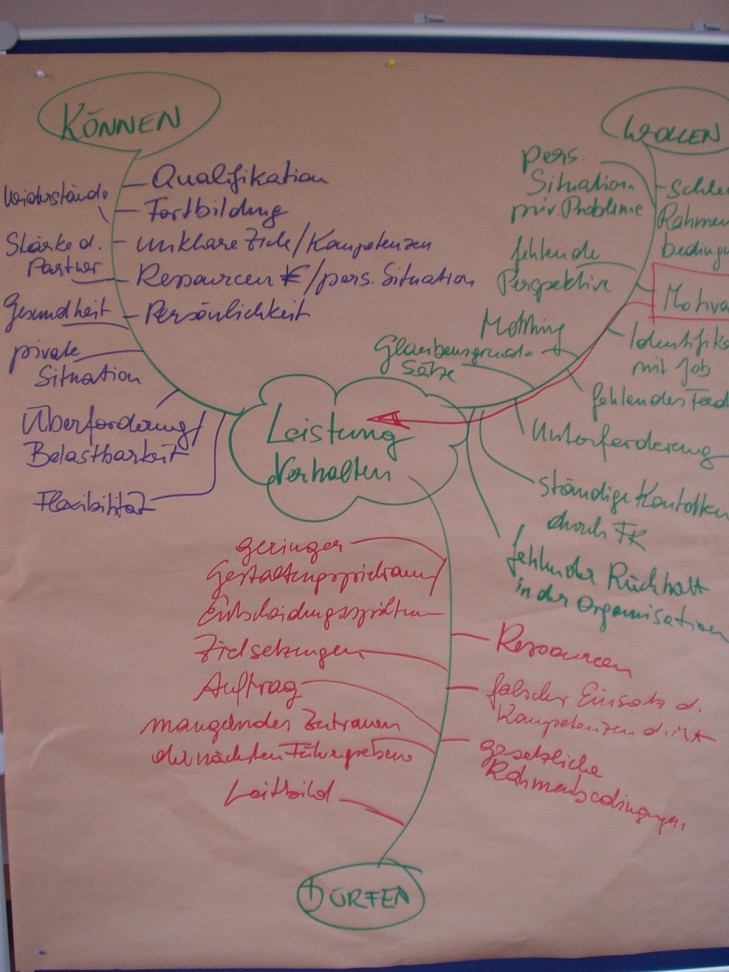 KÖNNEN
Widerstände
Stärke d.
Partner
Gesundheit
private
Situation
Überforderung/
Belastbarkeit
Flexibilität
Qualifikation
Fortbildung
unklare Ziele/Kompetenzen
Ressourcen €/pers. Situation
Persönlichkeit
WOLLEN
pers.
Situation
priv. Probleme
fehlende
Perspektive
Mobbing
Glaubensgrund-
sätze
Rahmen
beding
Motiva
Identifik
mit Job
fehlendes
Unterforderung
ständige Kontrollen
durch FK
fehlender Rückhalt
in der Organisation
Leistung
Verhalten
geringer
Gestaltungsspielraum/
Entscheidungs
Zielsetzungen
Auftrag
mangelndes Zutrauen
der nächsten Führgsebene
Leitbild
Ressourcen
falscher Einsatz d.
Kompetenzen d. MA
gesetzliche
Rahmenbedingungen
DÜRFEN